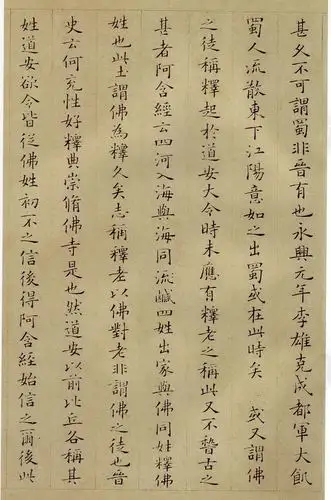 甚久不可謂蜀非晉有也永興元年李雄克成都軍大飢
蜀人流散東下江陽意如之出蜀或在此時矣 或又謂佛
之徒稱釋起於道安大令時未應有釋老之稱此又不瞽古之
甚者阿含經云四河入海與海同流鹹四姓出家與佛同姓釋佛
姓也此土謂佛為釋久矣志稱釋老以佛對老非謂佛之徒也晉
史云何充性好釋典崇脩佛寺是也然道安以前比丘各稱其
姓道安欲令皆從佛姓初不之信後得阿含經始信之爾後此